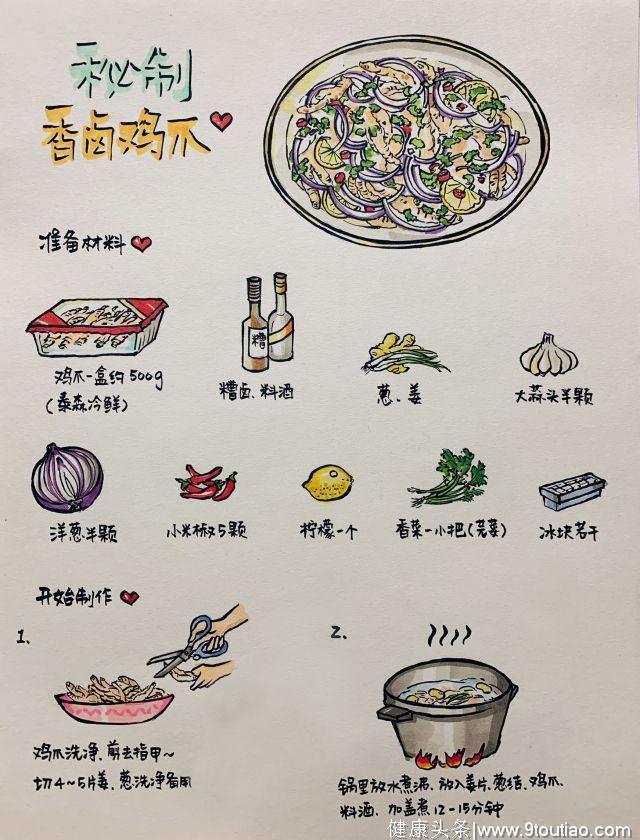 秘制
香卤鸡爪
准备材料
鸡爪一盒约500g
(泰森冷鲜)
糟
糟卤、料酒
葱、姜
大蒜头半颗
洋葱半颗
小米椒5颗
柠檬一个
香菜一小把(芫荽)
冰块若干
开始制作
1.
鸡爪洗净、剪去指甲~
切4~5片姜、葱洗净备用
2.
锅里放水煮沸、放入姜片、葱结、鸡爪、
料酒、加盖煮12-15分钟
健康头条/www.9toutiao.com